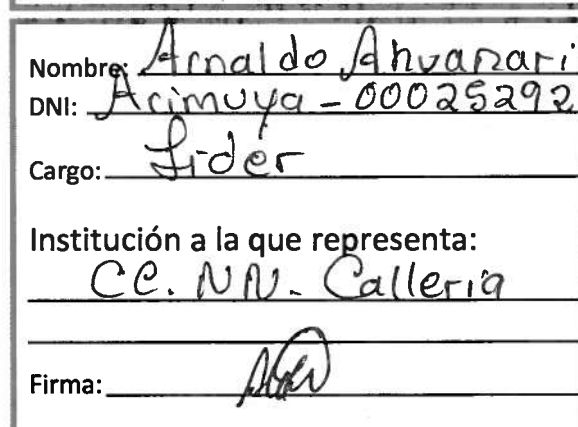 Nombre: Arnaldo Ahuanari
DNI: Arimuya - 00025292
Cargo: Lider
Institución a la que representa:
CC. NN. Calleria
Firma: